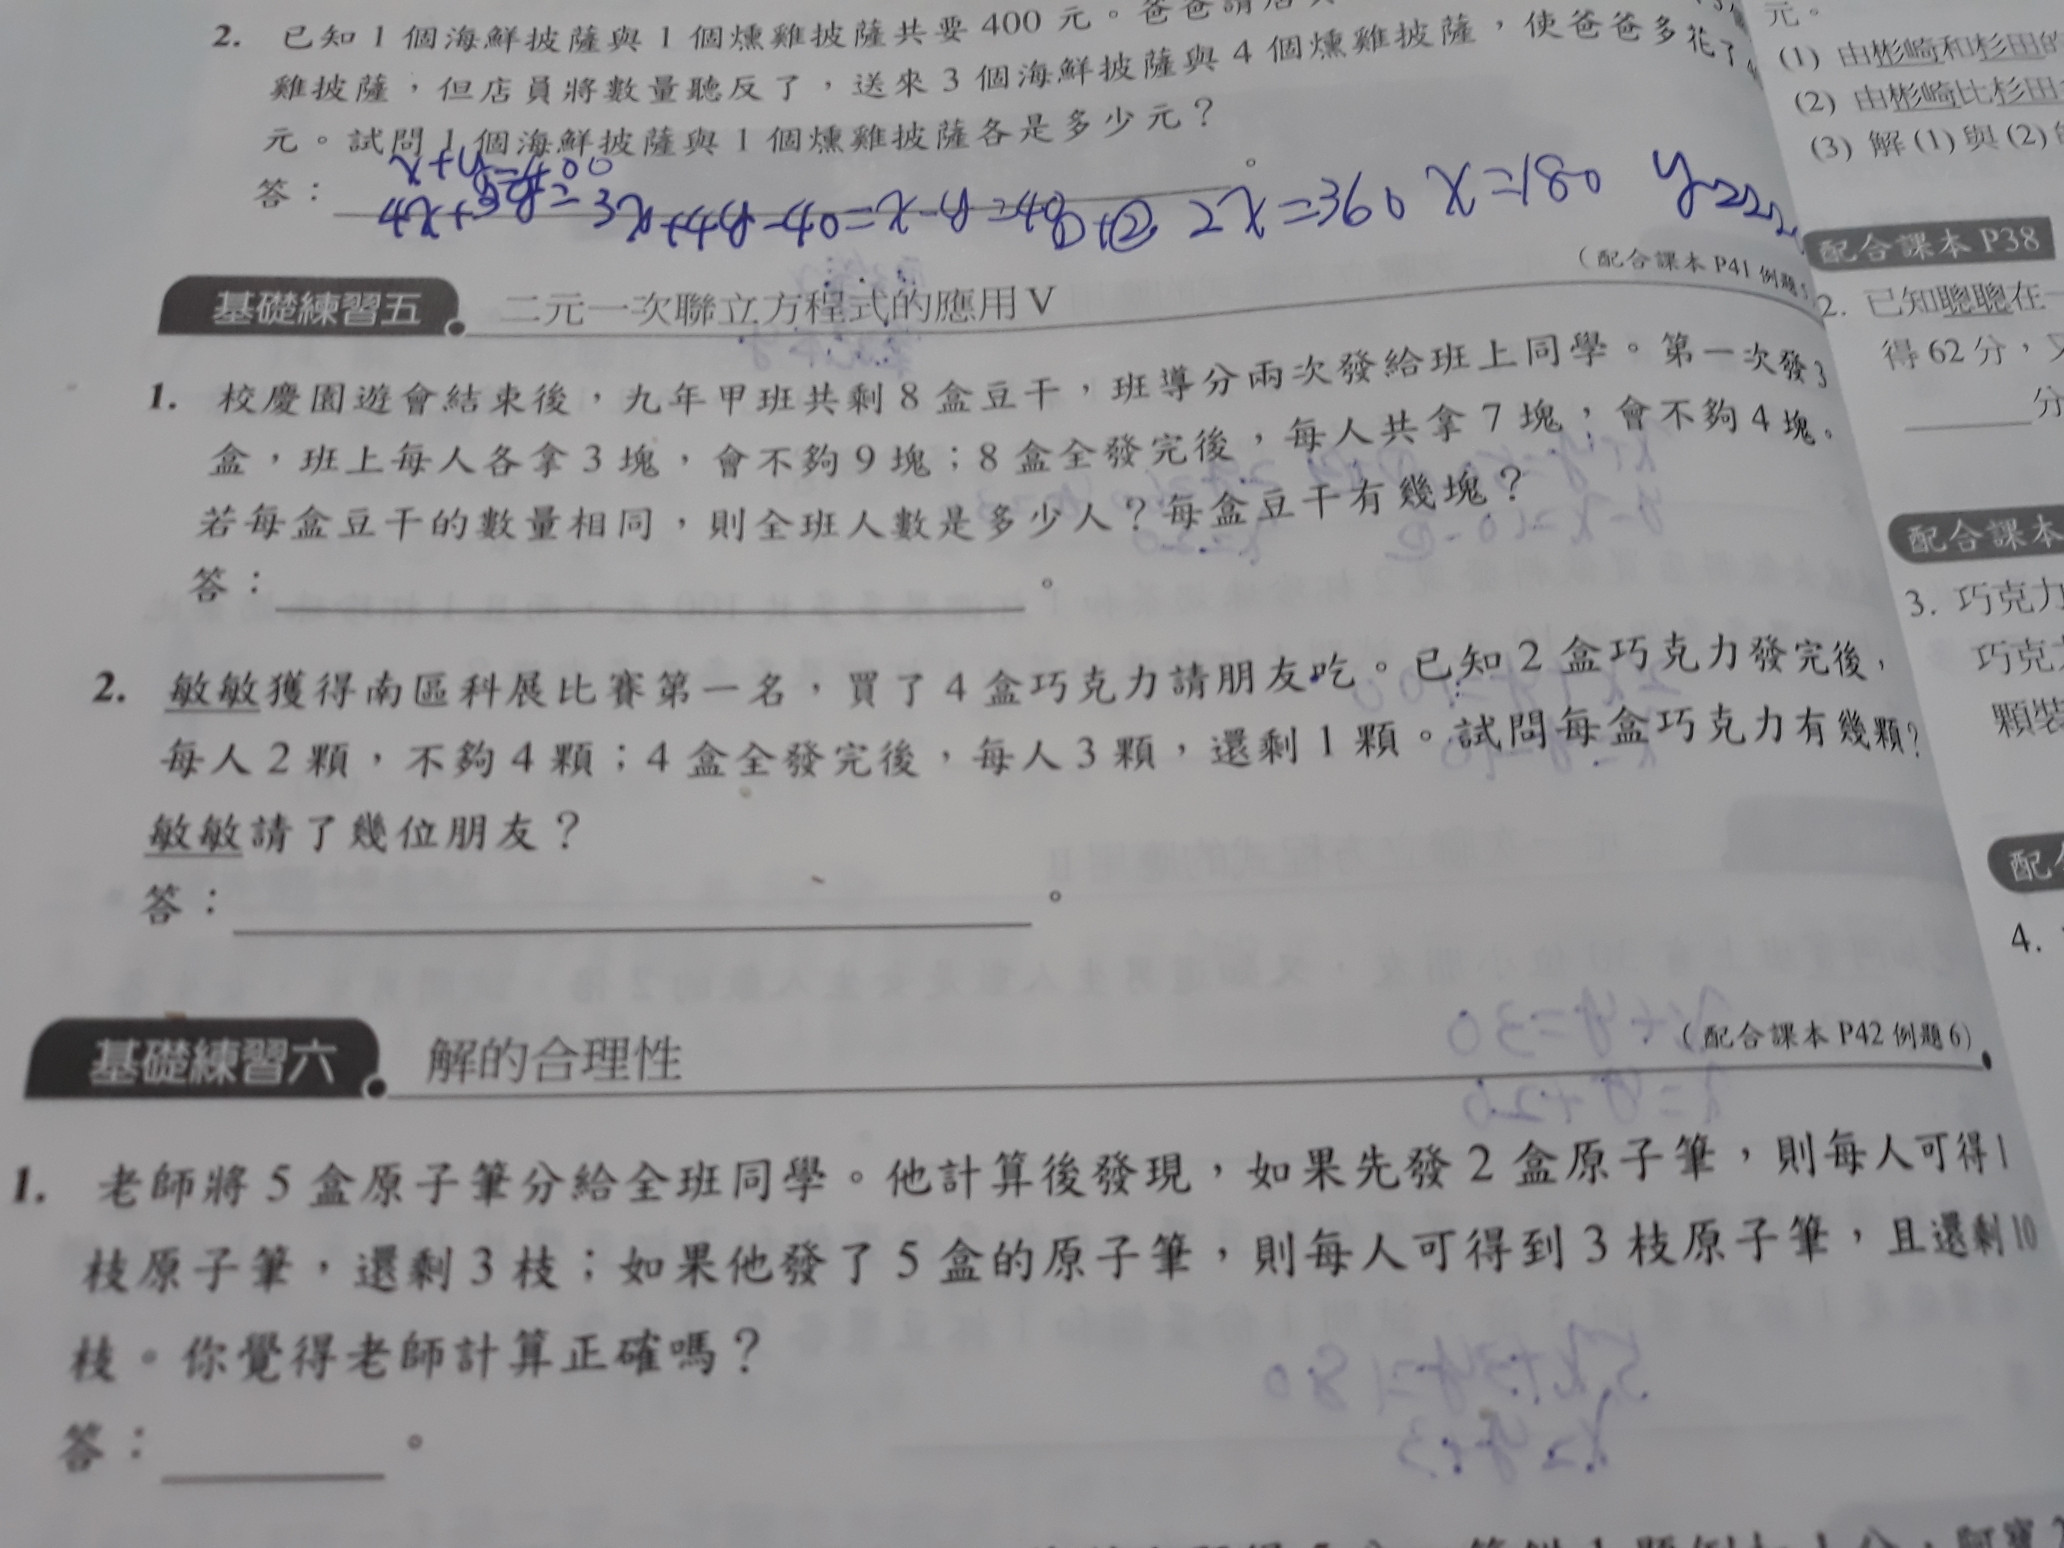 2. 已知 1 個海鮮披薩與 1 個燻雞披薩共要 400 元。爸爸請店
雞披薩，但店員將數量聽反了，送來 3 個海鮮披薩與 4 個燻雞披薩，使爸爸多花了
元。試問 1 個海鮮披薩與 1 個燻雞披薩各是多少元？
x+y=400
答：
2x=360 x=180
(配合課本 P41 例題5
基礎練習五 二元一次聯立方程式的應用 V
1. 校慶園遊會結束後，九年甲班共剩 8 盒豆干，班導分兩次發給班上同學。第一次發 3
盒，班上每人各拿 3 塊，會不夠 9 塊；8 盒全發完後，每人共拿 7 塊，會不夠 4 塊。
若每盒豆干的數量相同，則全班人數是多少人？每盒豆干有幾塊？
答： 。
2. 敏敏獲得南區科展比賽第一名，買了 4 盒巧克力請朋友吃。已知 2 盒巧克力發完後，
每人 2 顆，不夠 4 顆；4 盒全發完後，每人 3 顆，還剩 1 顆。試問每盒巧克力有幾顆？
敏敏請了幾位朋友？
答： 。
基礎練習六 解的合理性 (配合課本 P42 例題 6)
1. 老師將 5 盒原子筆分給全班同學。他計算後發現，如果先發 2 盒原子筆，則每人可得 1
枝原子筆，還剩 3 枝；如果他發了 5 盒的原子筆，則每人可得到 3 枝原子筆，且還剩 10
枝。你覺得老師計算正確嗎？
答： 。
元。
(1) 由彬崎和杉田的
(2) 由彬崎比杉田
(3) 解 (1) 與 (2)
配合課本 P38
2. 已知聰聰在一
得 62 分，又
分
配合課本
3. 巧克力
巧克
顆裝
配
4.